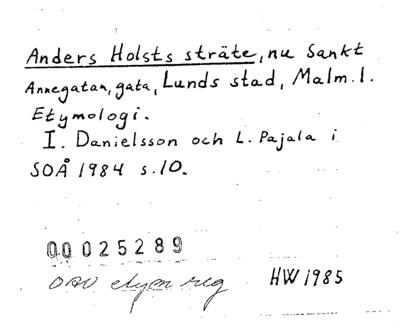 Anders Holsts sträte, nu Sankt
Annegatan, gata, Lunds stad, Malm. l.
Etymologi.
I. Danielsson och L. Pajala i
SOÅ 1984 s.10.
00025289
OAU etym reg HW 1985